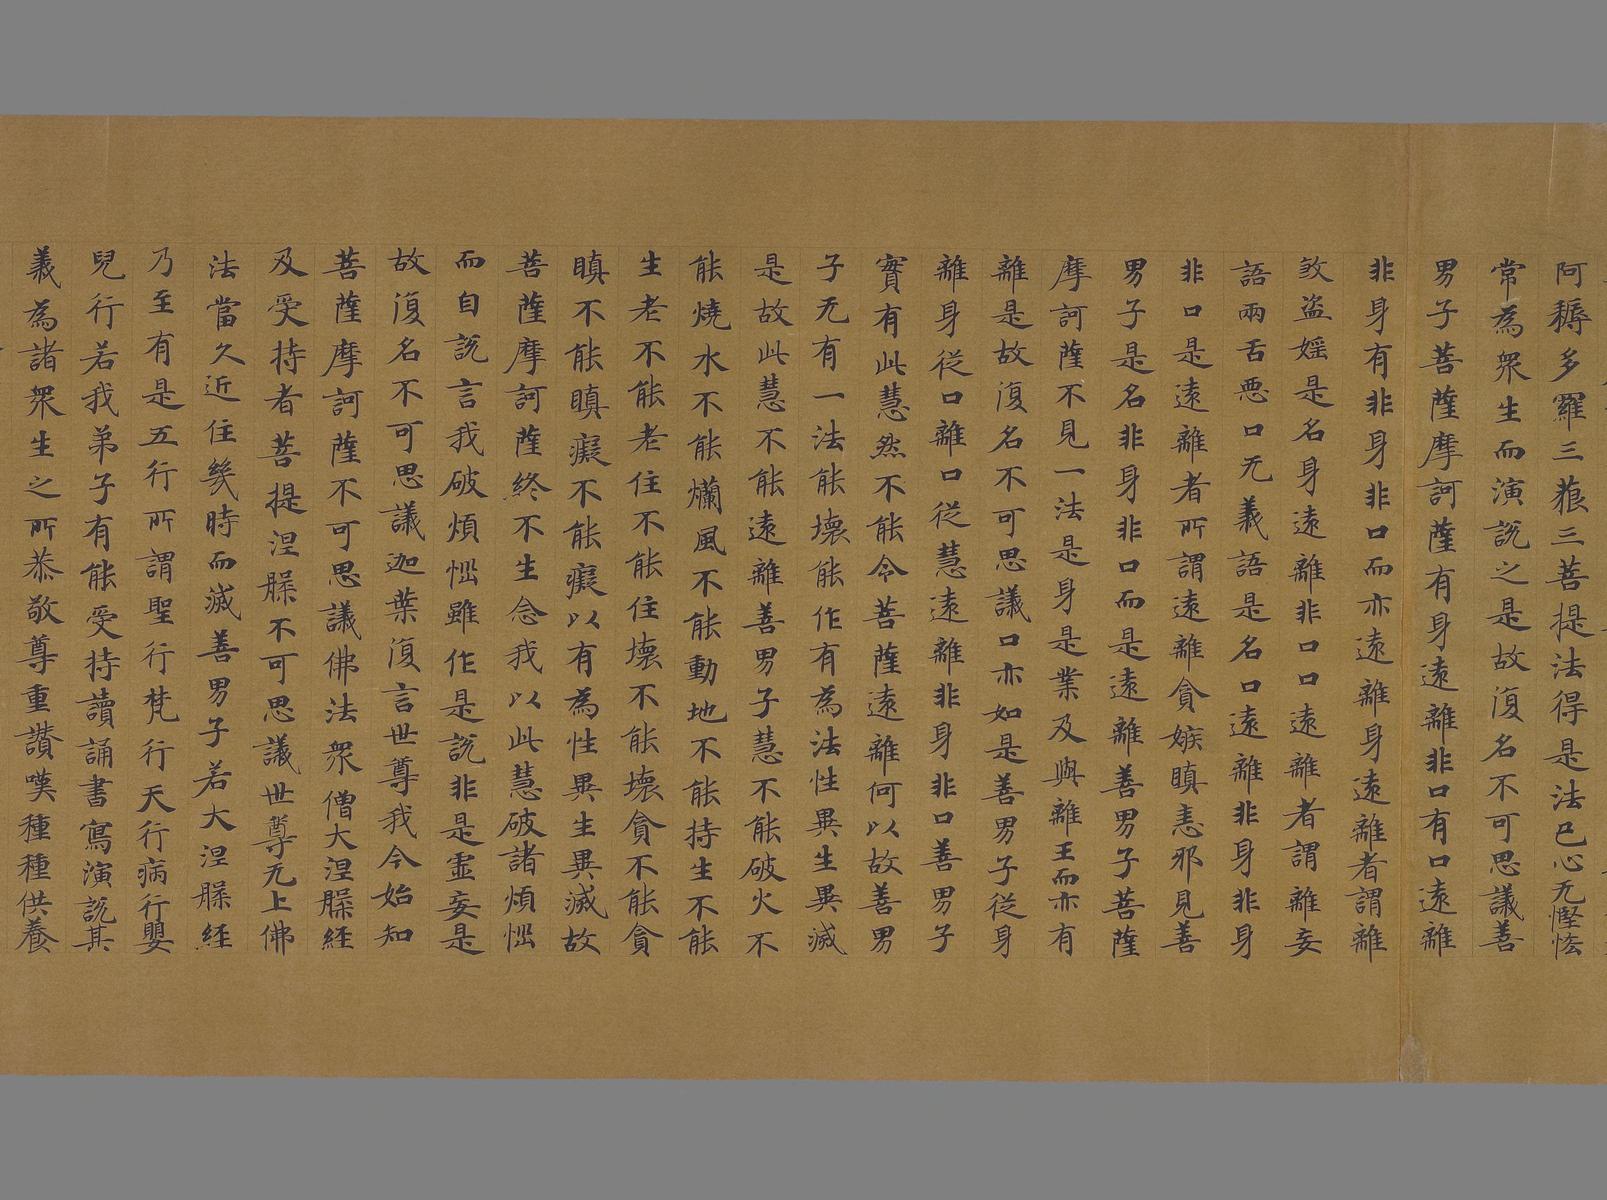 阿耨多羅三藐三菩提法得是法已心无慳悋
常為眾生而演說之是故復名不可思議善
男子菩薩摩訶薩有身遠離非口有口遠離
非身有非身非口而亦遠離身遠離者謂離
煞盜婬是名身遠離非口口遠離者謂離妄
語兩舌惡口无義語是名口遠離非身非身
非口是遠離者所謂遠離貪嫉瞋恚邪見善
男子是名非身非口而是遠離善男子菩薩
摩訶薩不見一法是身是業及與離主而亦有
離是故復名不可思議口亦如是善男子從身
離身從口離口從慧遠離非身非口善男子
實有此慧然不能令菩薩遠離何以故善男
子无有一法能壞能作有為法性異生異滅
是故此慧不能遠離善男子慧不能破火不
能燒水不能爛風不能動地不能持生不能
生老不能老住不能住壞不能壞貪不能貪
瞋不能瞋癡不能癡以有為性異生異滅故
菩薩摩訶薩終不生念我以此慧破諸煩惱
而自說言我破煩惱雖作是說非是虛妄是
故復名不可思議迦葉復言世尊我今始知
菩薩摩訶薩不可思議佛法眾僧大涅槃經
及受持者菩提涅槃不可思議世尊无上佛
法當久近住幾時而滅善男子若大涅槃經
乃至有是五行所謂聖行梵行天行病行嬰
兒行若我弟子有能受持讀誦書寫演說其
義為諸眾生之所恭敬尊重讚嘆種種供養